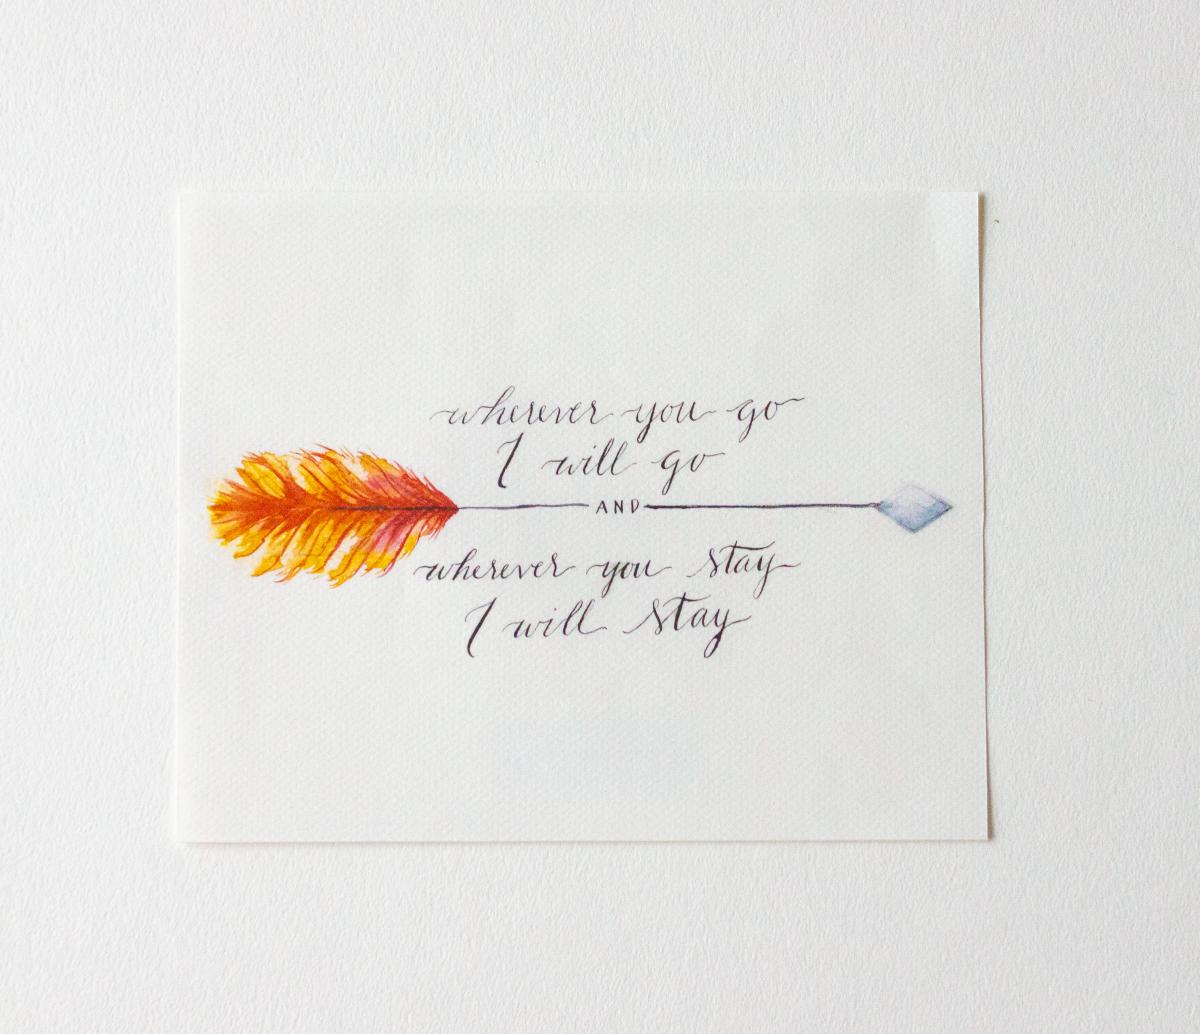 wherever you go
I will go
AND
wherever you stay
I will stay